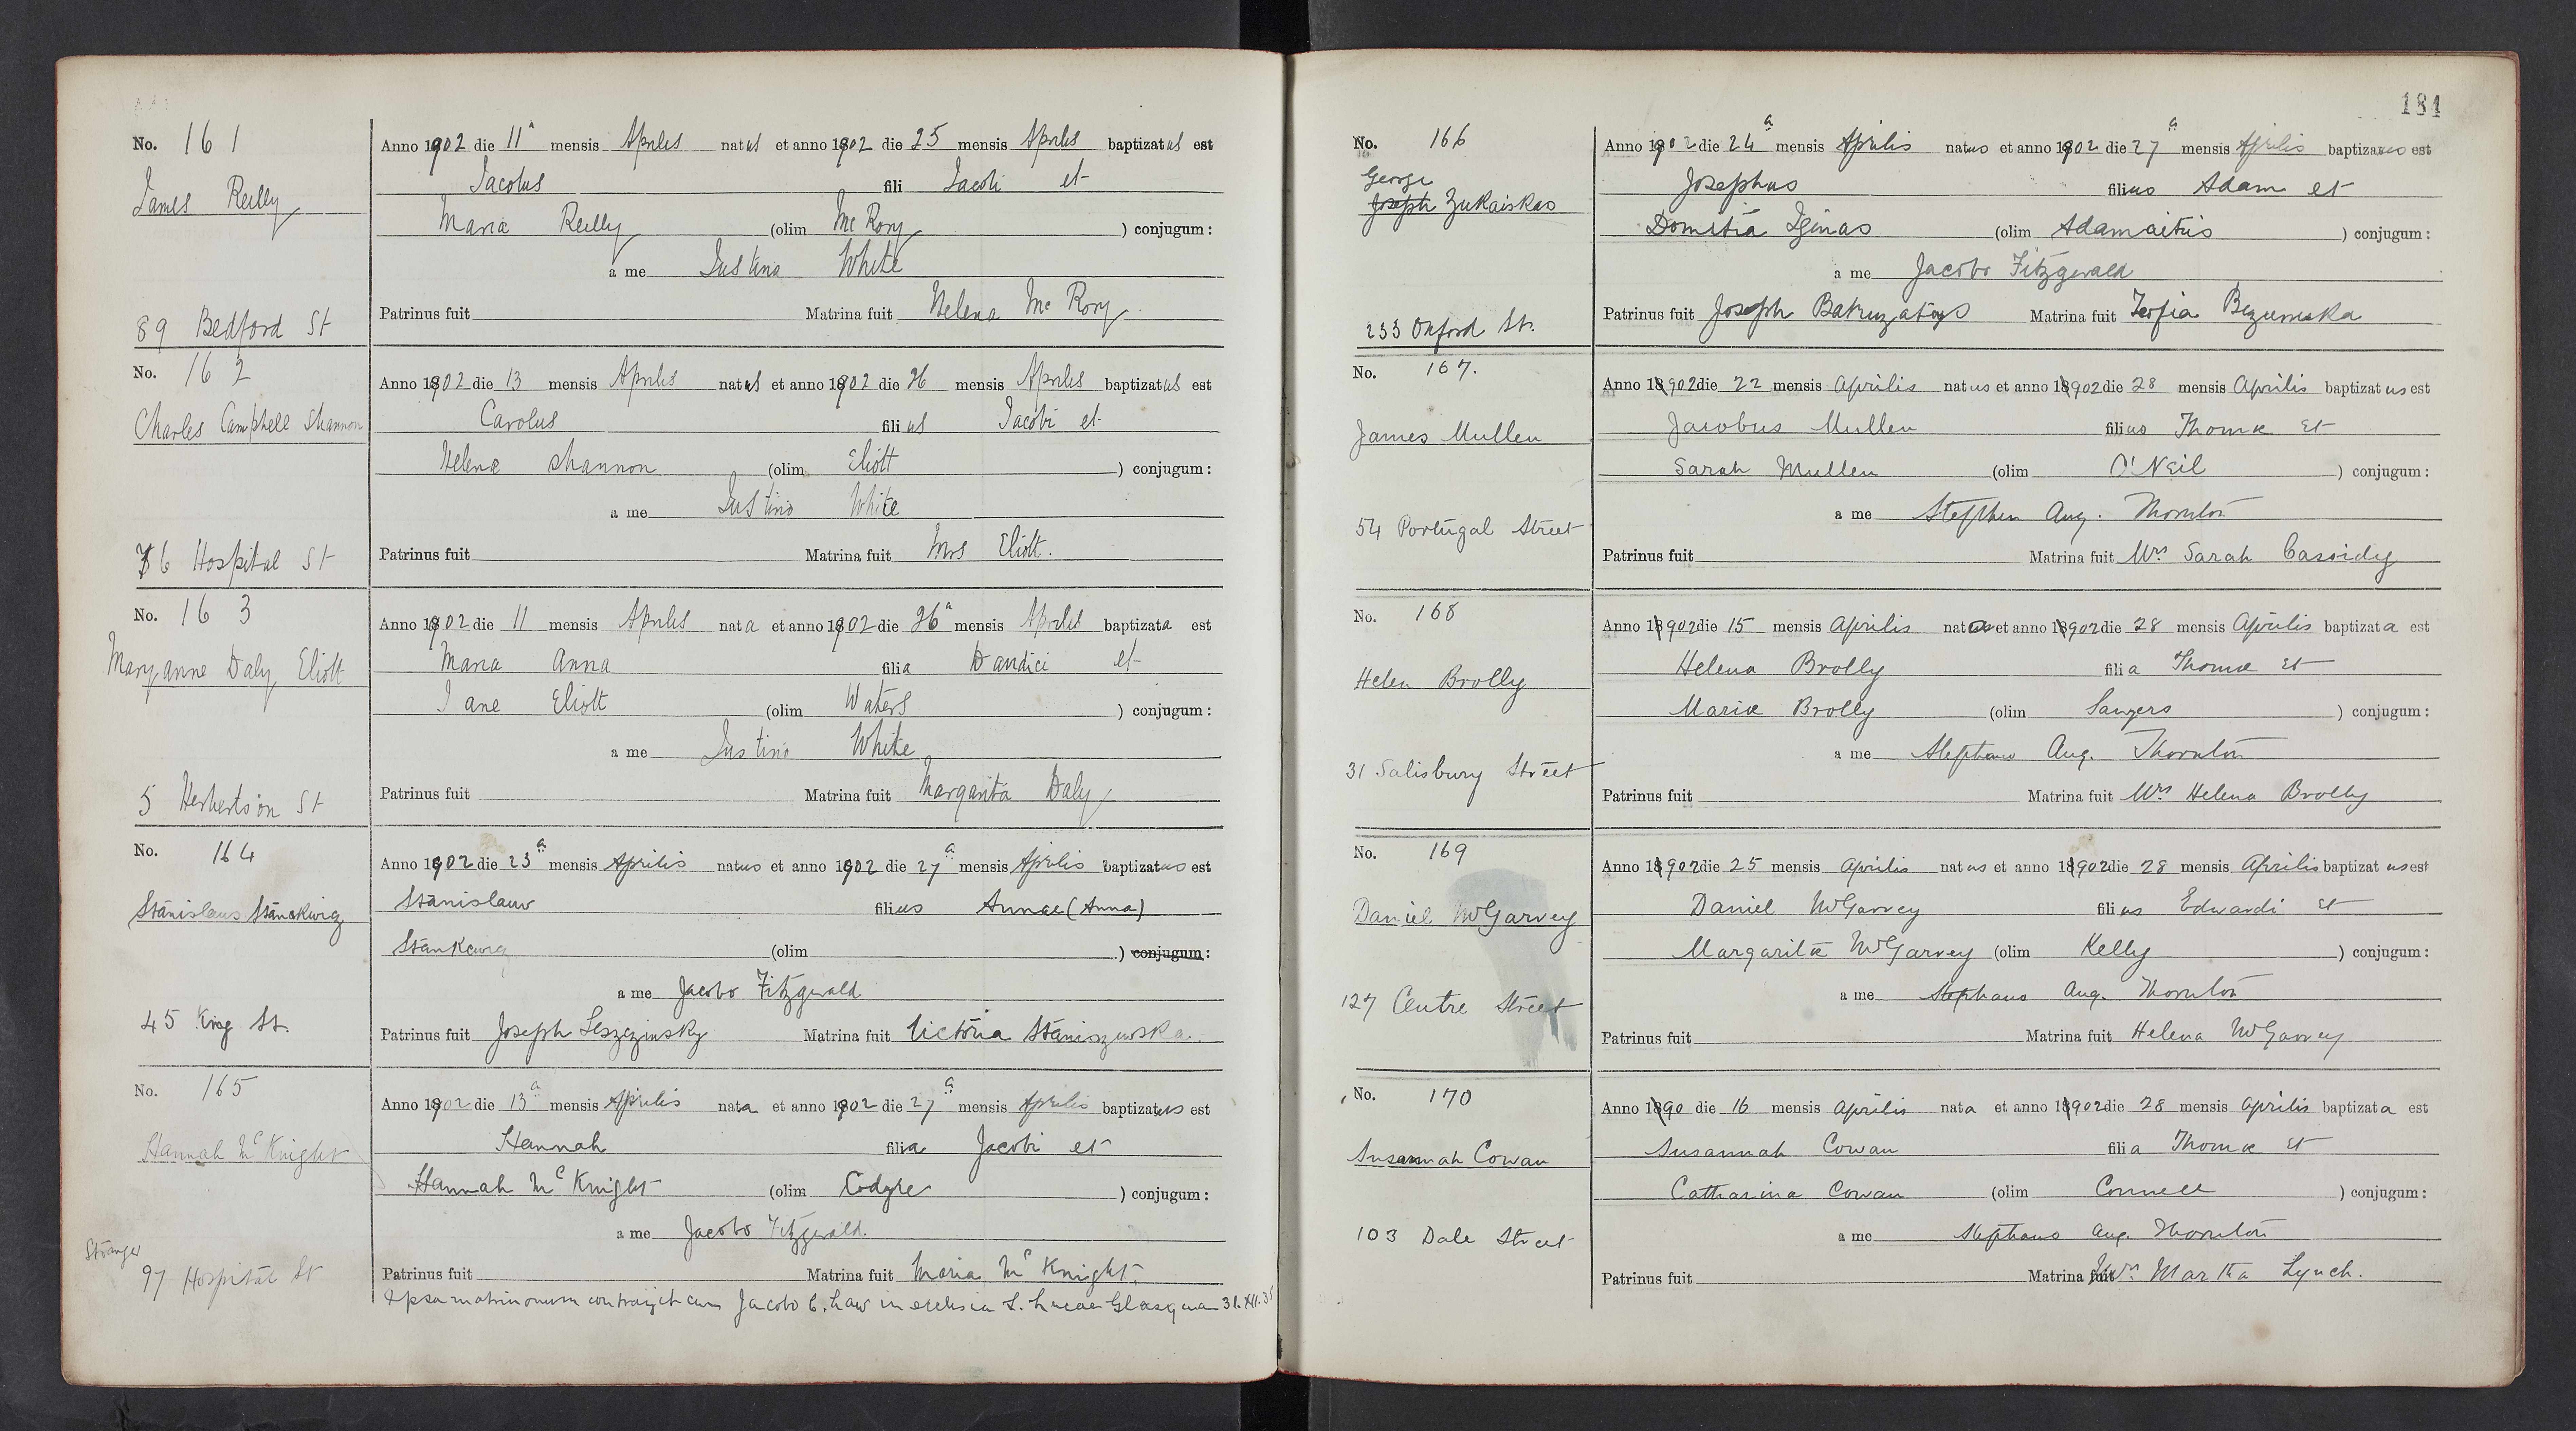 No. 161
James Reilly
89 Bedford St
Anno 1902 die 11a mensis Aprilis natus et anno 1902 die 25 mensis Aprilis baptizatus est
Jacobus fili Jacobi et
Maria Reilly (olim Mc Rory ) conjugum:
a me Justino White
Patrinus fuit Matrina fuit Helena Mc Rory
No. 162
Charles Camphell Shannon
76 Hospital St
Anno 1902 die 13 mensis Aprilis natus et anno 1902 die 26 mensis Aprilis baptizatus est
Carolus filius Jacobi et
Helenæ Shannon (olim Eliott ) conjugum:
a me Justino White
Patrinus fuit Matrina fuit Mrs Eliott.
No. 163
Mary anne Daly Eliott
5 Herbertson St
Anno 1902 die 11 mensis Aprilis nata et anno 1902 die 26a mensis Aprilis baptizata est
Maria Anna filia Dandici et
Jane Eliott (olim Waters ) conjugum:
a me Justino White
Patrinus fuit Matrina fuit Margarita Daly
No. 164
Stanislaus
45 King St.
Anno 1902 die 23a mensis Aprilis natus et anno 1902 die 27a mensis Aprilis baptizatus est
Stanislaus filius Annae (Anna)
(olim ) conjugum:
a me Jacobo Fitzgerald
Patrinus fuit Joseph Leszczinsky Matrina fuit Victoria Staniszewska.
No. 165
Hannah Mc Knight
Stranger
97 Hospital St
Anno 1902 die 13a mensis Aprilis nata et anno 1902 die 27a mensis Aprilis baptizatus est
Hannah filia Jacobi et
Hannah Mc Knight (olim ) conjugum:
a me Jacobo Fitzgerald.
Patrinus fuit Matrina fuit Maria Mc Knight.
Ipsa matrimonium contraxit cum Jacobo C. Law in ecclesia S. Lucae Glasguae 31.XII.35
184
No. 166
George
Joseph Zukaiskas
233 Oxford St.
Anno 1902 die 24a mensis Aprilis natus et anno 1902 die 27a mensis Aprilis baptizatus est
Josephus filius Adam et
Domitia Iginas (olim Adamaitis ) conjugum:
a me Jacobo Fitzgerald
Patrinus fuit Joseph Matrina fuit
No. 167.
James Mullen
54 Portugal Street
Anno 18902 die 22 mensis Aprilis natus et anno 18902 die 28 mensis Aprilis baptizatus est
Jacobus Mullen filius Thomæ et
Sarah Mullen (olim O'Neil ) conjugum:
a me Stephen Aug. Thornton
Patrinus fuit Matrina fuit Mrs Sarah Cassidy
No. 168
Helen Brolly
31 Salisbury Street
Anno 18902 die 15 mensis Aprilis nata et anno 18902 die 28 mensis Aprilis baptizata est
Helena Brolly filia Thomæ et
Mariæ Brolly (olim Sawyers ) conjugum:
a me Stephano Aug. Thornton
Patrinus fuit Matrina fuit Mrs Helena Brolly
No. 169
Daniel McGarvey
127 Centre Street
Anno 18902 die 25 mensis Aprilis natus et anno 18902 die 28 mensis Aprilis baptizatus est
Daniel McGarvey filius Edwardi et
Margaritæ McGarvey (olim Kelly ) conjugum:
a me Stephano Aug. Thornton
Patrinus fuit Matrina fuit Helena McGarvey
No. 170
Susannah Cowan
103 Dale Street
Anno 1890 die 16 mensis Aprilis nata et anno 18902 die 28 mensis Aprilis baptizata est
Susannah Cowan filia Thomæ et
Catharina Cowan (olim Connell ) conjugum:
a me Stephano Aug. Thornton
Patrinus fuit Matrina fuit Mrs Martha Lynch.